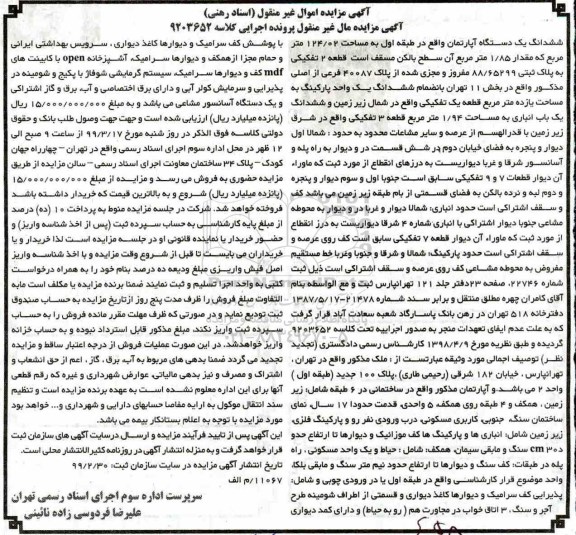 آگهی مزایده اموال غیر منقول (اسناد رهنی)
آگهی مزایده مال غیر منقول پرونده اجرایی کلاسه ۹۲۰۳۶۵۲
ششدانگ یک دستگاه آپارتمان واقع در طبقه اول به مساحت ۱۲۴/۰۲ متر
مربع که مقدار ۱/۸۵ متر مربع آن سطح بالکن مسقف است قطعه ۲ تفکیکی
به پلاک ثبتی ۸۸/۶۵۲۹۹ مفروز و مجزی شده از پلاک ۴۰۰۸۷ فرعی از اصلی
مذکور واقع در بخش ۱۱ تهران بانضمام ششدانگ یک واحد پارکینگ به
مساحت یازده متر مربع قطعه یک تفکیکی واقع در شمال زیر زمین و ششدانگ
یک باب انباری به مساحت ۱/۹۴ متر مربع قطعه ۳ تفکیکی واقع در شرق
زیر زمین با قدرالسهم از عرصه و سایر مشاعات محدود به حدود : شمالا اول
دیوار و پنجره به فضای خیابان دوم در شش قسمت در و دیوار به راه پله و
آسانسور شرقا و غربا دیواریست به درزهای انقطاع از مورد ثبت که ماوراء
آن دیوار قطعات ۷ و ۹ تفکیکی سابق است جنوبا اول و سوم دیوار و پنجره
و دوم لبه و نرده بالکن به فضای قسمتی از بام طبقه زیر زمین می باشد کف
و سقف اشتراکی است حدود انباری: شمالا دیوار و غربا در و دیوار به محوطه
مشاعی جنوبا دیوار اشتراکی با انباری شماره ۴ شرقا دیواریست به درز انقطاع
از مورد ثبت که ماوراء آن دیوار قطعه ۷ تفکیکی سابق است کف روی عرصه و
سقف اشتراکی است حدود پارکینگ: شمالا و شرقا و جنوبا وغربا خط مستقیم
مفروض به محوطه مشاعی کف روی عرصه و سقف اشتراکی است ذیل ثبت
شماره ۲۲۷۴۶، صفحه ۲۳دفتر جلد ۱۲۱ تهرانپارس ثبت و مع الواسطه بنام
آقای کامران چهره مطلق منتقل و برابر سند شماره ۲۱۴۷۸-۱۳۸۷/۵/۱۷
دفترخانه ۵۱۸ تهران در رهن بانک پاسارگاد شعبه سعادت آباد قرار گرفت
که به علت عدم ایفای تعهدات منجر به صدور اجراییه تحت کلاسه ۹۲۰۳۶۵۲
گردیده و طبق نظریه مورخ ۱۳۹۸/۴/۹ کارشناس رسمی دادگستری (تجدید
نظر) توصیف اجمالی مورد وثیقه عبارتست از : ملک مذکور واقع در تهران ،
تهرانپارس ، خیابان ۱۸۲ شرقی (رحیمی طاری) ،پلاک ۱۰۰ جدید (طبقه اول )
واحد ۲ می باشد.و آپارتمان مذکور واقع در ساختمانی در ۶ طبقه شامل: زیر
زمین ، همکف و ۴ طبقه روی همکف، ۵ واحدی، قدمت حدودا ۱۷ سال، نمای
ساختمان سنگ، جنوبی، کاربری مسکونی، درب ورودی نفر رو و پارکینگ فلزی.
زیر زمین شامل: انباری ها و پارکینگ ها کف موزائیک و دیوارها تا ارتفاع حدو
د۳۰ cm سنگ و مابقی سیمان، همکف: شامل : حیاط و یک واحد مسکونی ، راه
پله در طبقات: کف سنگ و دیوارها تا ارتفاع حدود نیم متر سنگ و مابقی بلکا،
واحد موضوع قرار کارشناسی واقع در طبقه اول یا در ورودی چوبی و شامل:
پذیرایی کف سرامیک و دیوارها کاغذ دیواری و قسمتی از اطراف شومینه طرح
آجر و سنگ ، ۳ اتاق خواب در مجاورت هم ( رو به حیاط) و دارای کمد دیواری
با پوشش کف سرامیک و دیوارها کاغذ دیواری ، سرویس بهداشتی ایرانی
و حمام مجزا ازهمکف و دیوارها سرامیک، آشپزخانه open با کابینت های
mdf کف و دیوارها سرامیک، سیستم گرمایشی شوفاژ با پکیج و شومینه در
پذیرایی و سرمایش کولر آبی و دارای برق اختصاصی و آب، برق و گاز اشتراکی
و یک دستگاه آسانسور مشاعی می باشد و به مبلغ ۱۵/۰۰۰/۰۰۰/۰۰۰ ریال
(پانزده میلیارد ریال) ارزیابی شده است و جهت جهت وصول طلب بانک و حقوق
دولتی کلاسه فوق الذکر در روز شنبه مورخ ۹۹/۳/۱۷ از ساعت ۹ صبح الی
۱۲ ظهر در محل اداره سوم اجرای اسناد رسمی واقع در تهران – چهارراه جهان
کودک – پلاک ۳۴ ساختمان معاونت اجرای اسناد رسمی – سالن مزایده از طریق
مزایده حضوری به فروش می رسد و مزایده از مبلغ ۱۵/۰۰۰/۰۰۰/۰۰۰
(پانزده میلیارد ریال) شروع و به بالاترین قیمت که خریدار داشته باشد
فروخته خواهد شد. شرکت در جلسه مزایده منوط به پرداخت ۱۰ (ده) درصد
از مبلغ پایه کارشناسی به حساب سپرده ثبت (پس از اخذ شناسه واریز) و
حضور خریدار یا نماینده قانونی او در جلسه مزایده است لذا خریدار و یا
خریداران می بایست تا قبل از شروع وقت مزایده و با اخذ شناسه واریز
اصل فیش واریزی مبلغ ودیعه ده درصد بنام خود را به همراه درخواست
کتبی به واحد اجرا تسلیم و ثبت نمایند ضمنا برنده مزایده یا مکلف است مابه
التفاوت مبلغ فروش را ظرف مدت پنج روز ازتاریخ مزایده به حساب صندوق
ثبت تودیع نماید و در صورتی که ظرف مهلت مقرر مانده فروش را به حساب
سپرده ثبت واریز نکند، مبلغ مذکور قابل استرداد نبوده و به حساب خزانه
واریز خواهدشد. در این صورت عملیات فروش از درجه اعتبار ساقط و مزایده
تجدید می گردد ضمنا بدهی های مربوط به آب، برق ، گاز ، اعم از حق انشعاب و
اشتراک و مصرف و نیز بدهی مالیاتی، عوارض شهرداری و غیره که رقم قطعی
آنها برای این اداره معلوم نشده است به عهده برنده مزایده است و تنظیم
سند انتقال موکول به ارایه مفاصا حسابهای دارایی و شهرداری و... خواهد بود
مورد مزایده با توجه به اعلام بستانکار بیمه می باشد.
این آگهی پس از تایید فرآیند مزایده و ارسال درسایت آگهی های سازمان ثبت
قرار خواهد گرفت و به منزله انتشار آگهی در روزنامه کثیرالانتشار محلی است.
تاریخ انتشار آگهی مزایده در سایت سازمان ثبت: ۹۹/۲/۳۰
۱۱۰۶۷/م الف
سرپرست اداره سوم اجرای اسناد رسمی تهران
علیرضا فردوسی زاده نائینی